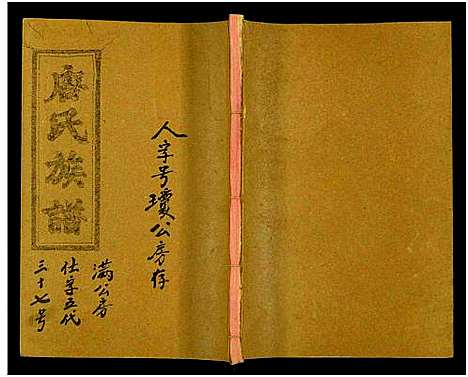 唐氏族譜
人字号瓊公房存
满公房
仕字五代
三十七号